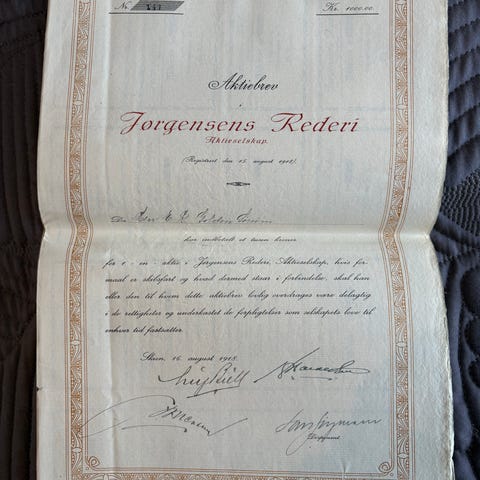 No 141 Kr. 1000.00
Aktiebrev
i
Jørgensens Rederi
Aktieselskap.
(Registrert den 15. august 1918)
Da Herr E.
har indbetalt et tusen kroner
for 1 - en - aktie i Jørgensens Rederi, Aktieselskap, hvis for-
maal er skibsfart og hvad dermed staar i forbindelse, skal han
eller den til hvem dette aktiebrev lovlig overdrages være delagtig
i de rettigheter og underkastet de forpligtelser som selskapets love til
enhver tid fastsætter.
Skien, 16. august 1918.
Disponent